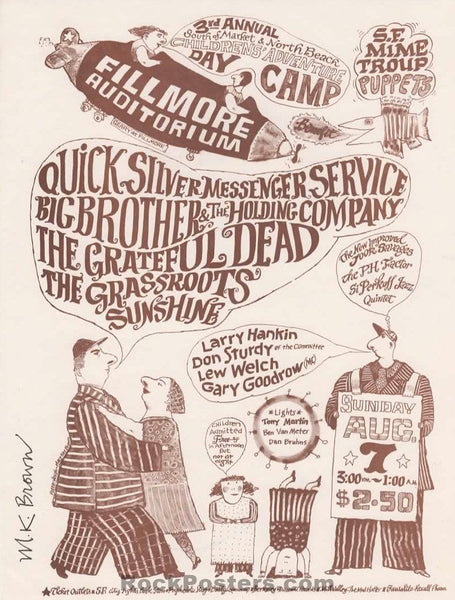 3rd ANNUAL
South of Market & North Beach
CHILDRENS' ADVENTURE
DAY CAMP
S.F.
MIME
TROUP
PUPPETS
FILLMORE
AUDITORIUM
GEARY at FILLMORE
Benefit
QUICKSILVER MESSENGER SERVICE
BIG BROTHER & THE HOLDING COMPANY
THE GRATEFUL DEAD
THE GRASSROOTS
SUNSHINE
The New Improved
Jook Savages
the P.H. Factor
Si Perkoff Jazz
Quintet
Larry Hankin
Don Sturdy of the Committee
Lew Welch
Gary Goodrow (MC)
Children
Admitted
Free
in Afternoon
But
not at
night
*Lights*
Tony Martin
Ben Van Meter
Dan Bruhns
SUNDAY
AUG.
7
3:00 P.M. - 1:00 A.M.
$2.50
M.K. Brown
Ticket Outlets S.F. City Lights
RockPosters.com